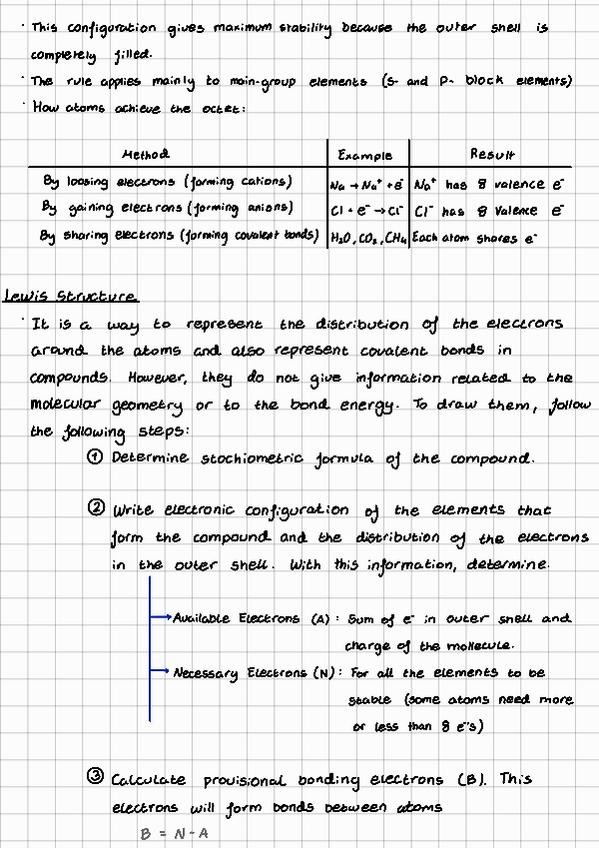 · This configuration gives maximum stability because the outer shell is
completely filled.
· The rule applies mainly to main-group elements (s- and p- block elements)
· How atoms achieve the octet:
Method Example Result
By loosing electrons (forming cations) Na → Na⁺ + e⁻ Na⁺ has 8 valence e⁻
By gaining electrons (forming anions) Cl + e⁻ → Cl⁻ Cl⁻ has 8 valence e⁻
By sharing electrons (forming covalent bonds) H₂O, CO₂, CH₄ Each atom shares e⁻
Lewis Structure
· It is a way to represent the distribution of the electrons
around the atoms and also represent covalent bonds in
compounds. However, they do not give information related to the
molecular geometry or to the bond energy. To draw them, follow
the following steps:
① Determine stochiometric formula of the compound.
② Write electronic configuration of the elements that
form the compound and the distribution of the electrons
in the outer shell. With this information, determine.
→ Available Electrons (A) : Sum of e⁻ in outer shell and
charge of the mollecule.
→ Necessary Electrons (N) : For all the elements to be
stable (some atoms need more
or less than 8 e⁻'s)
③ Calculate provisional bonding electrons (B). This
electrons will form bonds between atoms
B = N - A